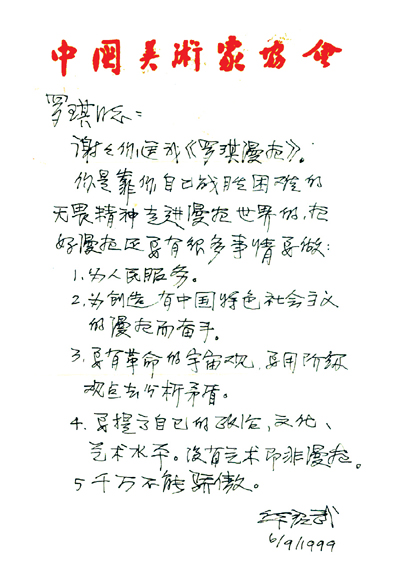 中国美術家协会
罗琪同志：
谢谢你送我《罗琪漫画》。
你是靠你自己战胜困难的
无畏精神走进漫画世界的，画
好漫画还要有很多事情要做：
1. 为人民服务。
2. 为创造有中国特色社会主义
的漫画而奋斗。
3. 要有革命的宇宙观，要用阶级
观点去分析矛盾。
4. 要提高自己的政治、文化、
艺术水平。没有艺术即非漫画。
5 千万不能骄傲。
6/9/1999